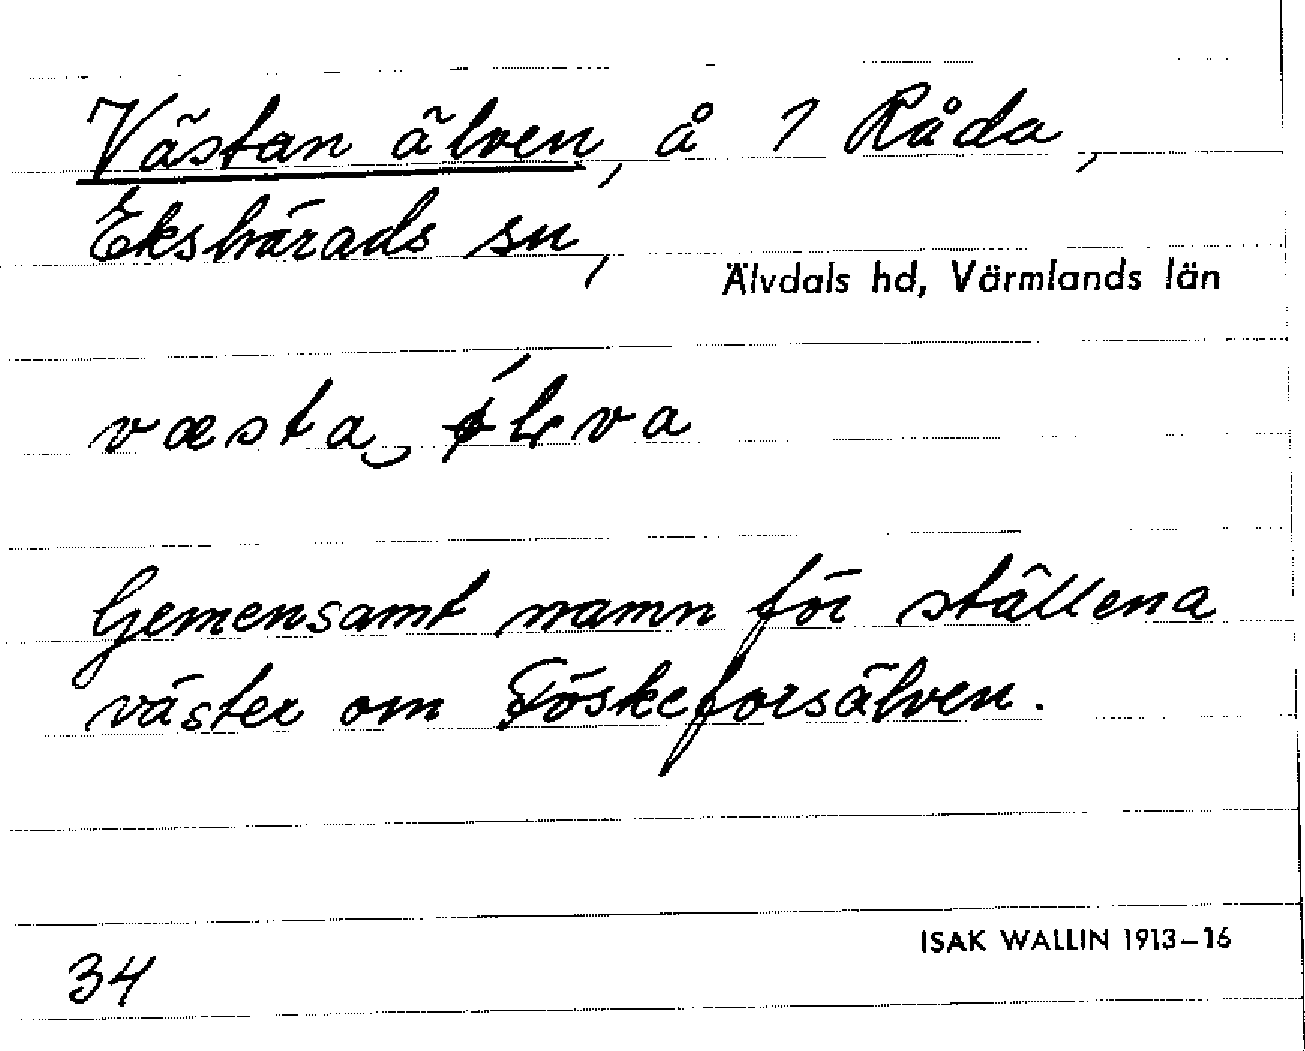 Västan älven, å 1 Råda,
Ekshärads sn,
Älvdals hd, Värmlands län
væsta‿
Gemensamt namn för ställena
väster om Föskeforsälven.
ISAK WALLIN 1913–16
34